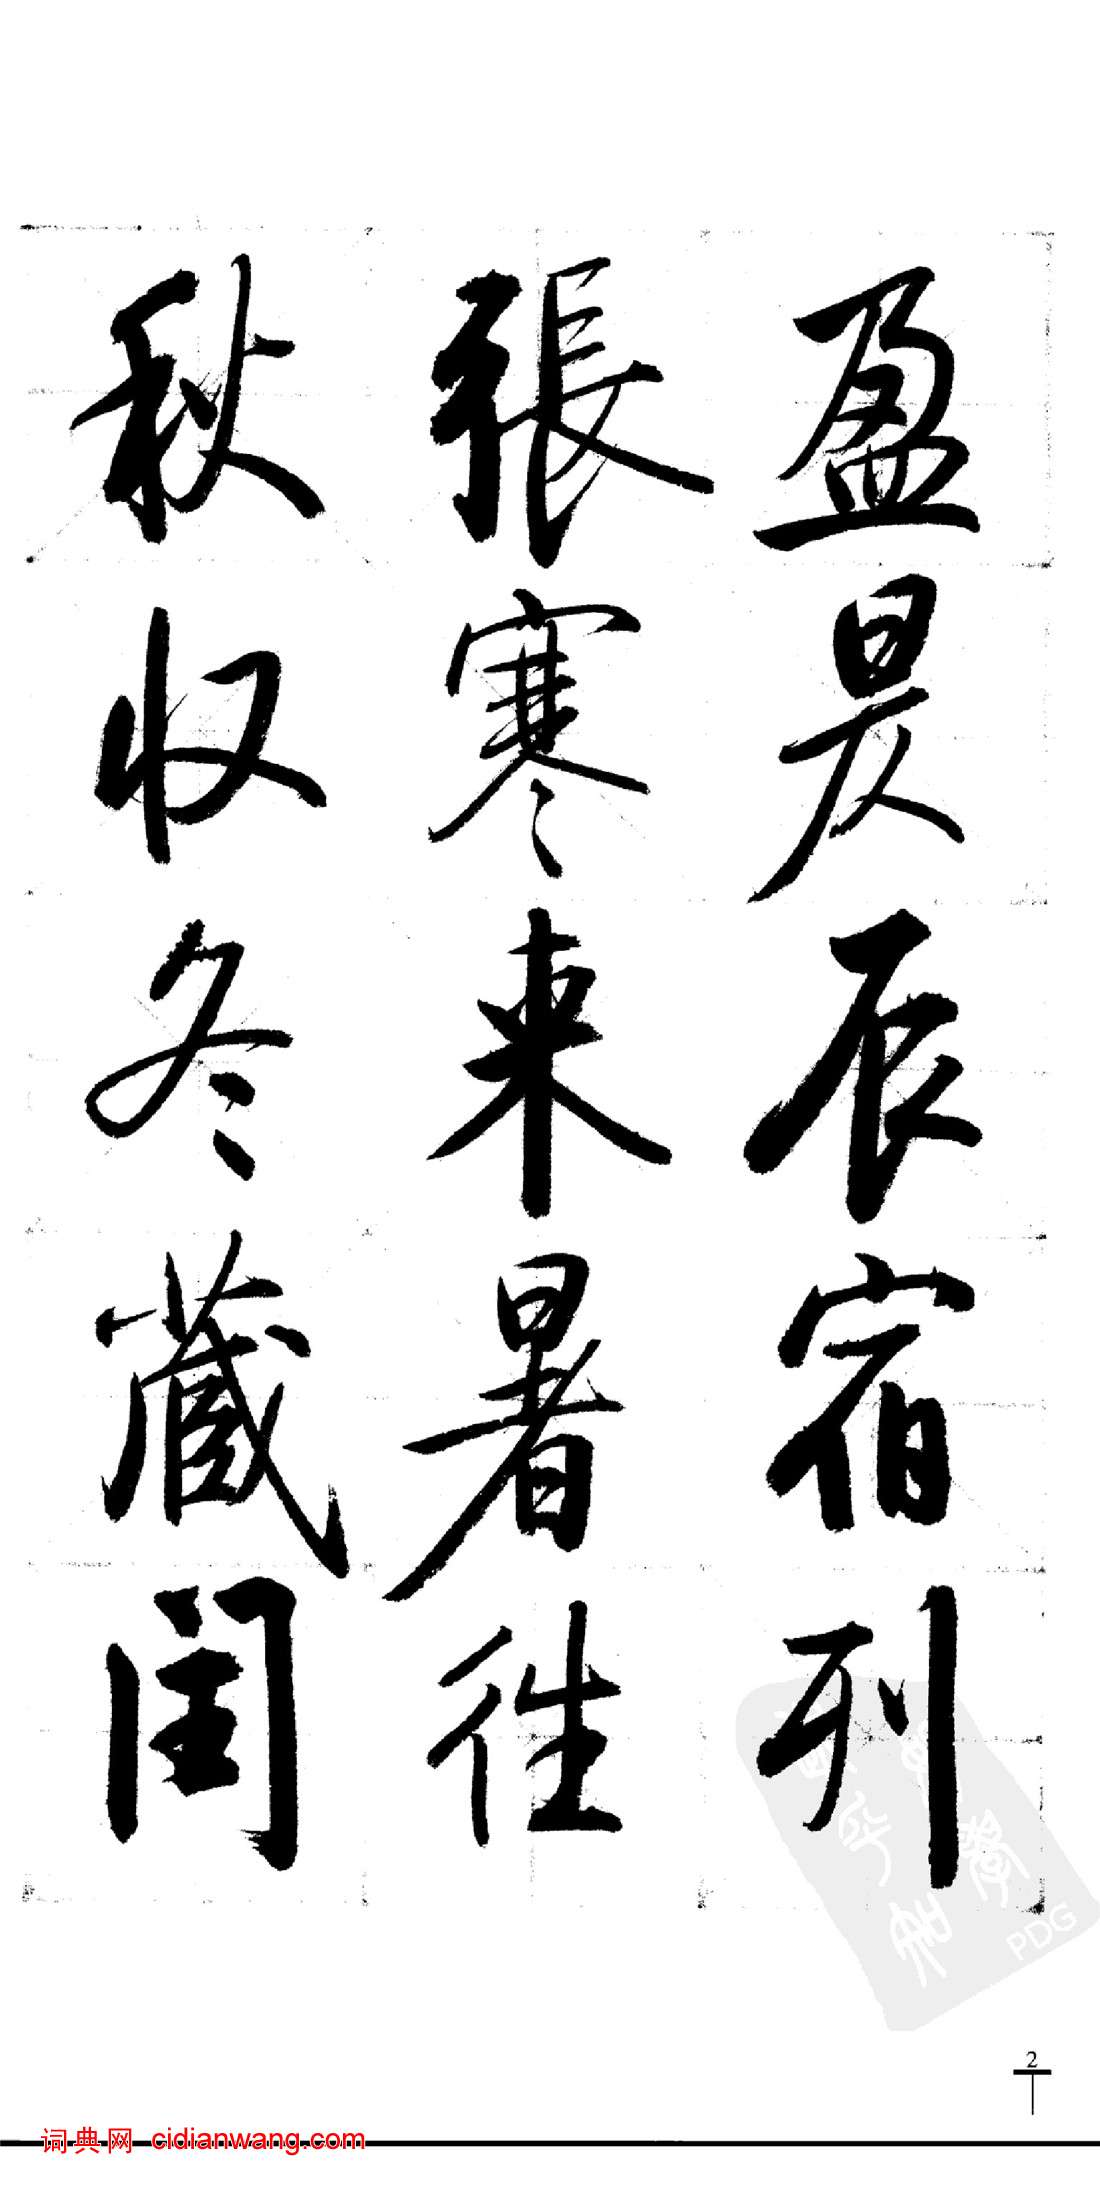 盈昃辰宿列
張寒来暑往
秋収冬蔵閏
2
词典网 cidianwang.com
PDG